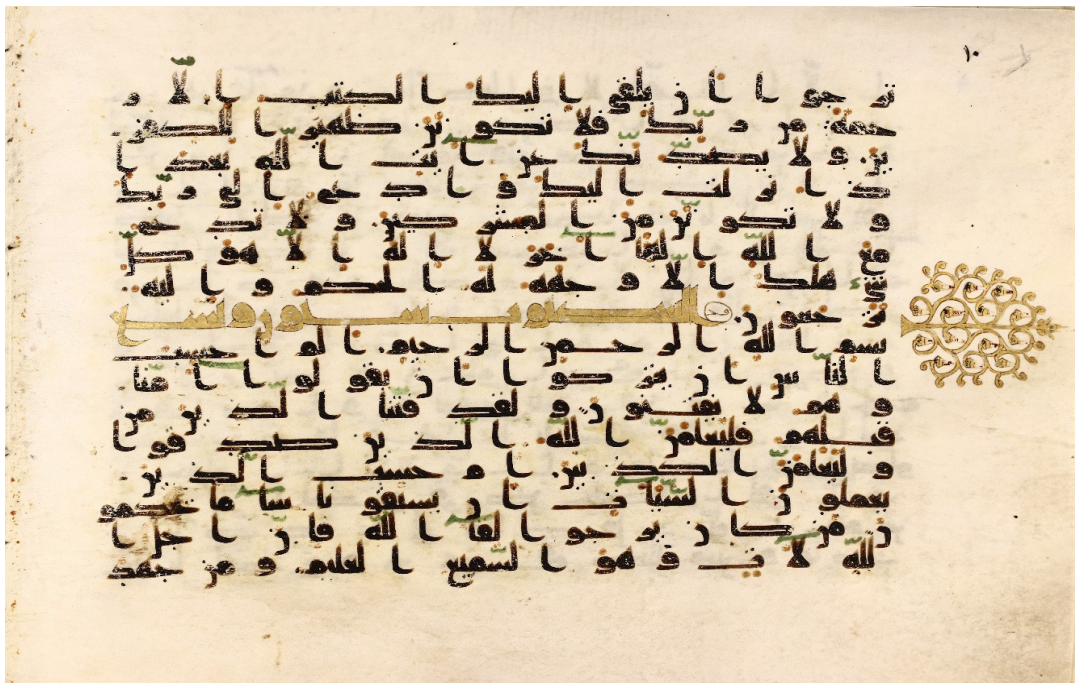 ١٠
ترجوا ان يلقى اليك الكتب الا ر
حمة من ربك فلا تكونن ظهيرا للكفر
ين ولا يصدنك عن ايت الله بعد ا
ذ انزلت اليك وادع الى ربك
ولا تكونن من المشركين ولا تدع
مع الله الها اخر لا اله الا هو كل
شى هلك الا وجهه له الحكم واليه
ترجعون العنكبوت ستون وتسع
بسم الله الرحمن الرحيم الم احسب
الناس ان يتركوا ان يقولوا امنا
وهم لا يفتنون ولقد فتنا الذين من
قبلهم فليعلمن الله الذين صدقوا
وليعلمن الكذبين ام حسب الذين
يعملون السيات ان يسبقونا سا ما يحكمو
ن من كان يرجوا لقا الله فان اجل ا
لله لات وهو السميع العليم ومن جهد